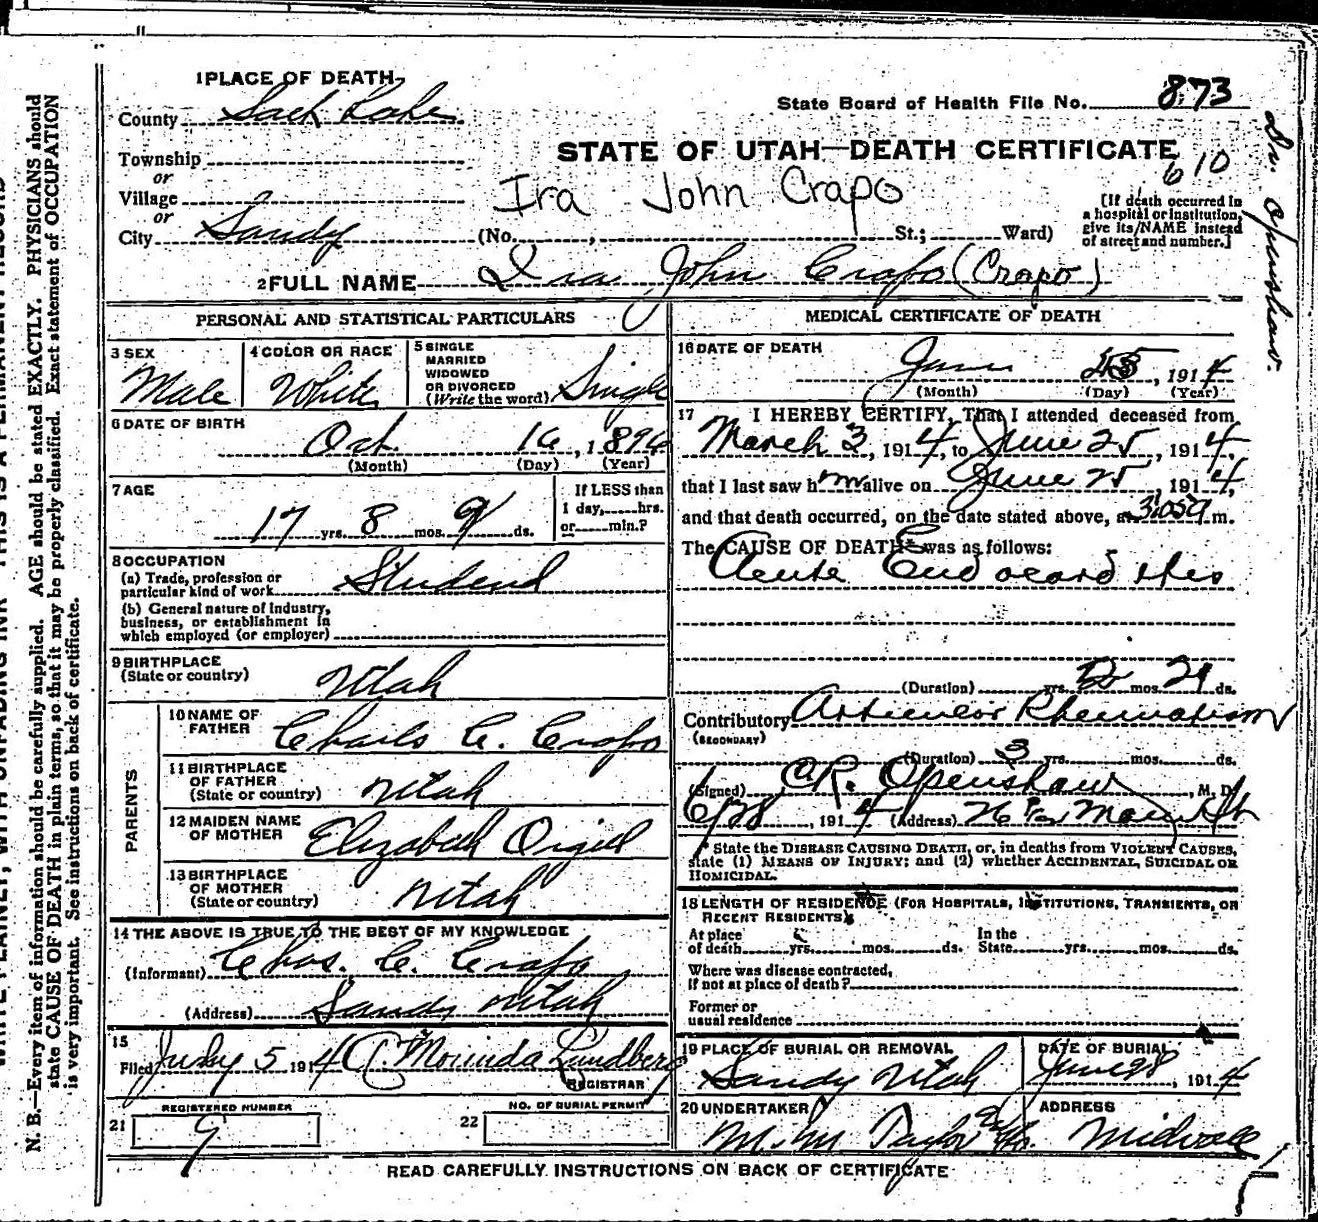 1 PLACE OF DEATH
County Salt Lake
State Board of Health File No. 873
Township
or
Village
or
City Sandy
STATE OF UTAH—DEATH CERTIFICATE
610
Ira John Crapo
(No. , St.; Ward)
[If death occurred in
a hospital or institution,
give its NAME instead
of street and number.]
Dr. Openshaw.
2 FULL NAME Ira John Crapo (Crapo)
PERSONAL AND STATISTICAL PARTICULARS
3 SEX
Male
4 COLOR OR RACE
White
5 SINGLE
MARRIED
WIDOWED
OR DIVORCED
(Write the word) Single
6 DATE OF BIRTH
Oct. 16, 1896
(Month) (Day) (Year)
7 AGE
17 yrs. 8 mos. 9 ds.
If LESS than
1 day, hrs.
or min.?
8 OCCUPATION
(a) Trade, profession or
particular kind of work Student
(b) General nature of Industry,
business, or establishment in
which employed (or employer)
9 BIRTHPLACE
(State or country)
Utah
PARENTS
10 NAME OF
FATHER
Charls C. Crapo
11 BIRTHPLACE
OF FATHER
(State or country) Utah
12 MAIDEN NAME
OF MOTHER Elizabeth
13 BIRTHPLACE
OF MOTHER
(State or country) Utah
14 THE ABOVE IS TRUE TO THE BEST OF MY KNOWLEDGE
(Informant) Chas. C. Crapo
(Address) Sandy Utah
15
Filed July 5 1914 C. Morinda Lundberg
REGISTRAR
REGISTERED NUMBER
21 9
NO. OF BURIAL PERMIT
22
MEDICAL CERTIFICATE OF DEATH
16 DATE OF DEATH
June 25, 1914
(Month) (Day) (Year)
17 I HEREBY CERTIFY, That I attended deceased from
March 3, 1914, to June 25, 1914,
that I last saw him alive on June 25, 1914,
and that death occurred, on the date stated above, at m.
The CAUSE OF DEATH was as follows:
Acute Endocarditis
(Duration) yrs. mos. 29 ds.
Contributory Articular Rheumatism
(SECONDARY)
(Duration) 3 yrs. mos. ds.
(Signed) A.R. Openshaw, M. D.
6/28, 1914 (Address) Main St
* State the DISEASE CAUSING DEATH, or, in deaths from VIOLENT CAUSES,
state (1) MEANS OF INJURY; and (2) whether ACCIDENTAL, SUICIDAL OR
HOMICIDAL.
18 LENGTH OF RESIDENCE (FOR HOSPITALS, INSTITUTIONS, TRANSIENTS, OR
RECENT RESIDENTS)
At place
of death yrs. mos. ds.
In the
State yrs. mos. ds.
Where was disease contracted,
if not at place of death?
Former or
usual residence
19 PLACE OF BURIAL OR REMOVAL
Sandy Utah
DATE OF BURIAL
June 28, 1914
20 UNDERTAKER
M. M. Taylor & Co.
ADDRESS
Midvale
READ CAREFULLY INSTRUCTIONS ON BACK OF CERTIFICATE
N. B.—Every item of information should be carefully supplied. AGE should be stated EXACTLY. PHYSICIANS should
state CAUSE OF DEATH in plain terms, so that it may be properly classified. Exact statement of OCCUPATION
is very important. See instructions on back of certificate.